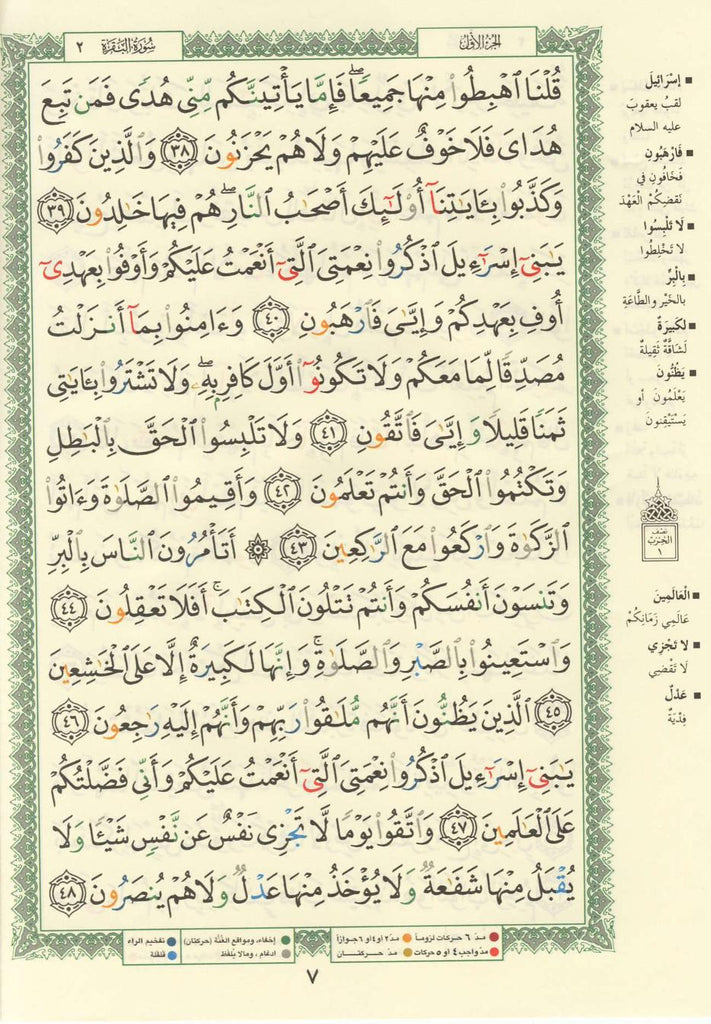 الجزء الأول
سُورَةُ البَقَرَةِ ٢
قُلْنَا ٱهْبِطُوا۟ مِنْهَا جَمِيعًۭا ۖ فَإِمَّا يَأْتِيَنَّكُم مِّنِّى هُدًۭى فَمَن تَبِعَ
هُدَاىَ فَلَا خَوْفٌ عَلَيْهِمْ وَلَا هُمْ يَحْزَنُونَ ٣٨ وَٱلَّذِينَ كَفَرُوا۟
وَكَذَّبُوا۟ بِـَٔايَـٰتِنَآ أُو۟لَـٰٓئِكَ أَصْحَـٰبُ ٱلنَّارِ ۖ هُمْ فِيهَا خَـٰلِدُونَ ٣٩
يَـٰبَنِىٓ إِسْرَٰٓءِيلَ ٱذْكُرُوا۟ نِعْمَتِىَ ٱلَّتِىٓ أَنْعَمْتُ عَلَيْكُمْ وَأَوْفُوا۟ بِعَهْدِىٓ
أُوفِ بِعَهْدِكُمْ وَإِيَّـٰىَ فَٱرْهَبُونِ ٤٠ وَءَامِنُوا۟ بِمَآ أَنزَلْتُ
مُصَدِّقًۭا لِّمَا مَعَكُمْ وَلَا تَكُونُوٓا۟ أَوَّلَ كَافِرٍۭ بِهِۦ ۖ وَلَا تَشْتَرُوا۟ بِـَٔايَـٰتِى
ثَمَنًۭا قَلِيلًۭا وَإِيَّـٰىَ فَٱتَّقُونِ ٤١ وَلَا تَلْبِسُوا۟ ٱلْحَقَّ بِٱلْبَـٰطِلِ
وَتَكْتُمُوا۟ ٱلْحَقَّ وَأَنتُمْ تَعْلَمُونَ ٤٢ وَأَقِيمُوا۟ ٱلصَّلَوٰةَ وَءَاتُوا۟
ٱلزَّكَوٰةَ وَٱرْكَعُوا۟ مَعَ ٱلرَّٰكِعِينَ ٤٣ ۞ أَتَأْمُرُونَ ٱلنَّاسَ بِٱلْبِرِّ
وَتَنسَوْنَ أَنفُسَكُمْ وَأَنتُمْ تَتْلُونَ ٱلْكِتَـٰبَ ۚ أَفَلَا تَعْقِلُونَ ٤٤
وَٱسْتَعِينُوا۟ بِٱلصَّبْرِ وَٱلصَّلَوٰةِ ۚ وَإِنَّهَا لَكَبِيرَةٌ إِلَّا عَلَى ٱلْخَـٰشِعِينَ
٤٥ ٱلَّذِينَ يَظُنُّونَ أَنَّهُم مُّلَـٰقُوا۟ رَبِّهِمْ وَأَنَّهُمْ إِلَيْهِ رَٰجِعُونَ ٤٦
يَـٰبَنِىٓ إِسْرَٰٓءِيلَ ٱذْكُرُوا۟ نِعْمَتِىَ ٱلَّتِىٓ أَنْعَمْتُ عَلَيْكُمْ وَأَنِّى فَضَّلْتُكُمْ
عَلَى ٱلْعَـٰلَمِينَ ٤٧ وَٱتَّقُوا۟ يَوْمًۭا لَّا تَجْزِى نَفْسٌ عَن نَّفْسٍۢ شَيْـًۭٔا وَلَا
يُقْبَلُ مِنْهَا شَفَـٰعَةٌۭ وَلَا يُؤْخَذُ مِنْهَا عَدْلٌۭ وَلَا هُمْ يُنصَرُونَ ٤٨
■ إسْرَائِيلَ
لقبُ يعقوبَ
عليه السلام
■ فَارْهَبُونِ
فَخَافُونِ في
نَقْضِكُمُ العَهْدَ
■ لَا تَلْبِسُوا
لا تَخْلِطُوا
■ بِالْبِرِّ
بالخَيْرِ والطَّاعَةِ
■ لَكَبِيرَةٌ
لَشَاقَّةٌ ثَقِيلَةٌ
■ يَظُنُّونَ
يَعْلَمُونَ أو
يَسْتَيْقِنُونَ
نصف
الحزب
١
■ الْعَالَمِينَ
عَالَمِي زَمَانِكُمْ
■ لَا تَجْزِي
لَا تَقْضِي
■ عَدْلٌ
فِدْيَةٌ
● مد ٦ حركات لزوماً ● مد٢ او٤ او٦ جوازاً
● مد واجب ٤ او ٥ حركات ● مد حركتان
● إخفاء، ومواقع الغُنَّة (حركتان) ● تفخيم الراء
● ادغام ، ومالا يُلفظ ● قلقلة
٧